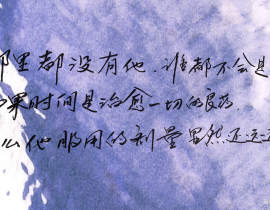 那里都没有他．谁都不会是
如果时间是治愈一切的良药
么他服用的剂量显然还远远